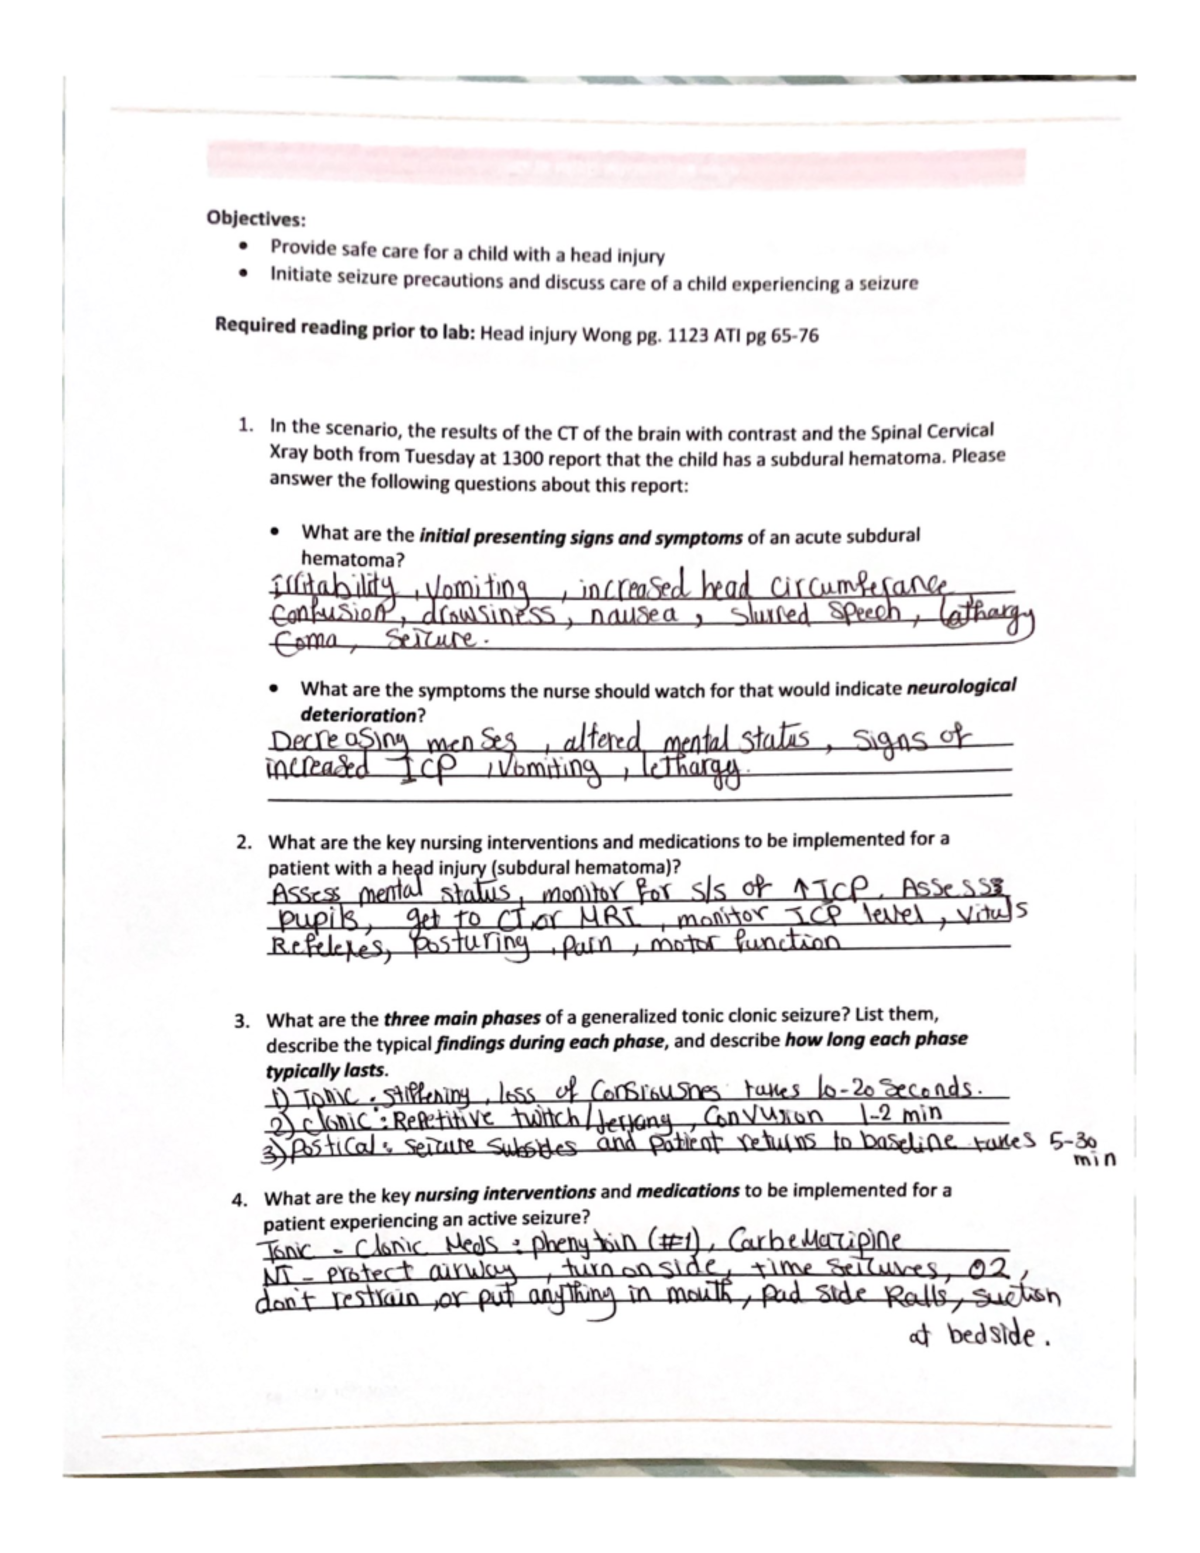 Objectives:
• Provide safe care for a child with a head injury
• Initiate seizure precautions and discuss care of a child experiencing a seizure
Required reading prior to lab: Head injury Wong pg. 1123 ATI pg 65-76
1. In the scenario, the results of the CT of the brain with contrast and the Spinal Cervical
Xray both from Tuesday at 1300 report that the child has a subdural hematoma. Please
answer the following questions about this report:
• What are the initial presenting signs and symptoms of an acute subdural
hematoma?
Irritability, vomiting, increased head circumferance
Confusion, drowsiness, nausea, slurred speech, lathargy
Coma, Seizure.
• What are the symptoms the nurse should watch for that would indicate neurological
deterioration?
Decreasing menses, altered mental status, signs of
increased ICP, Vomiting, lethargy.
2. What are the key nursing interventions and medications to be implemented for a
patient with a head injury (subdural hematoma)?
Assess mental status, monitor for s/s of ↑ICP. Assess
pupils, get to CT or MRI, monitor ICP level, vitals
Refelexes, Posturing, pain, motor function
3. What are the three main phases of a generalized tonic clonic seizure? List them,
describe the typical findings during each phase, and describe how long each phase
typically lasts.
1) Tonic: stiffening, loss of Consiousnes takes 10-20 Seconds.
2) clonic: Repetitive twitch/Jerking, Convusion 1-2 min
3) Postical: seizure subsides and patient returns to baseline takes 5-30
min
4. What are the key nursing interventions and medications to be implemented for a
patient experiencing an active seizure?
Tonic - Clonic Meds: phenytoin (#1), Carbemazipine
NI - protect airway, turn on side, time seizures, O2,
don't restrain, or put anything in mouth, pad side Rails, suction
at bedside.